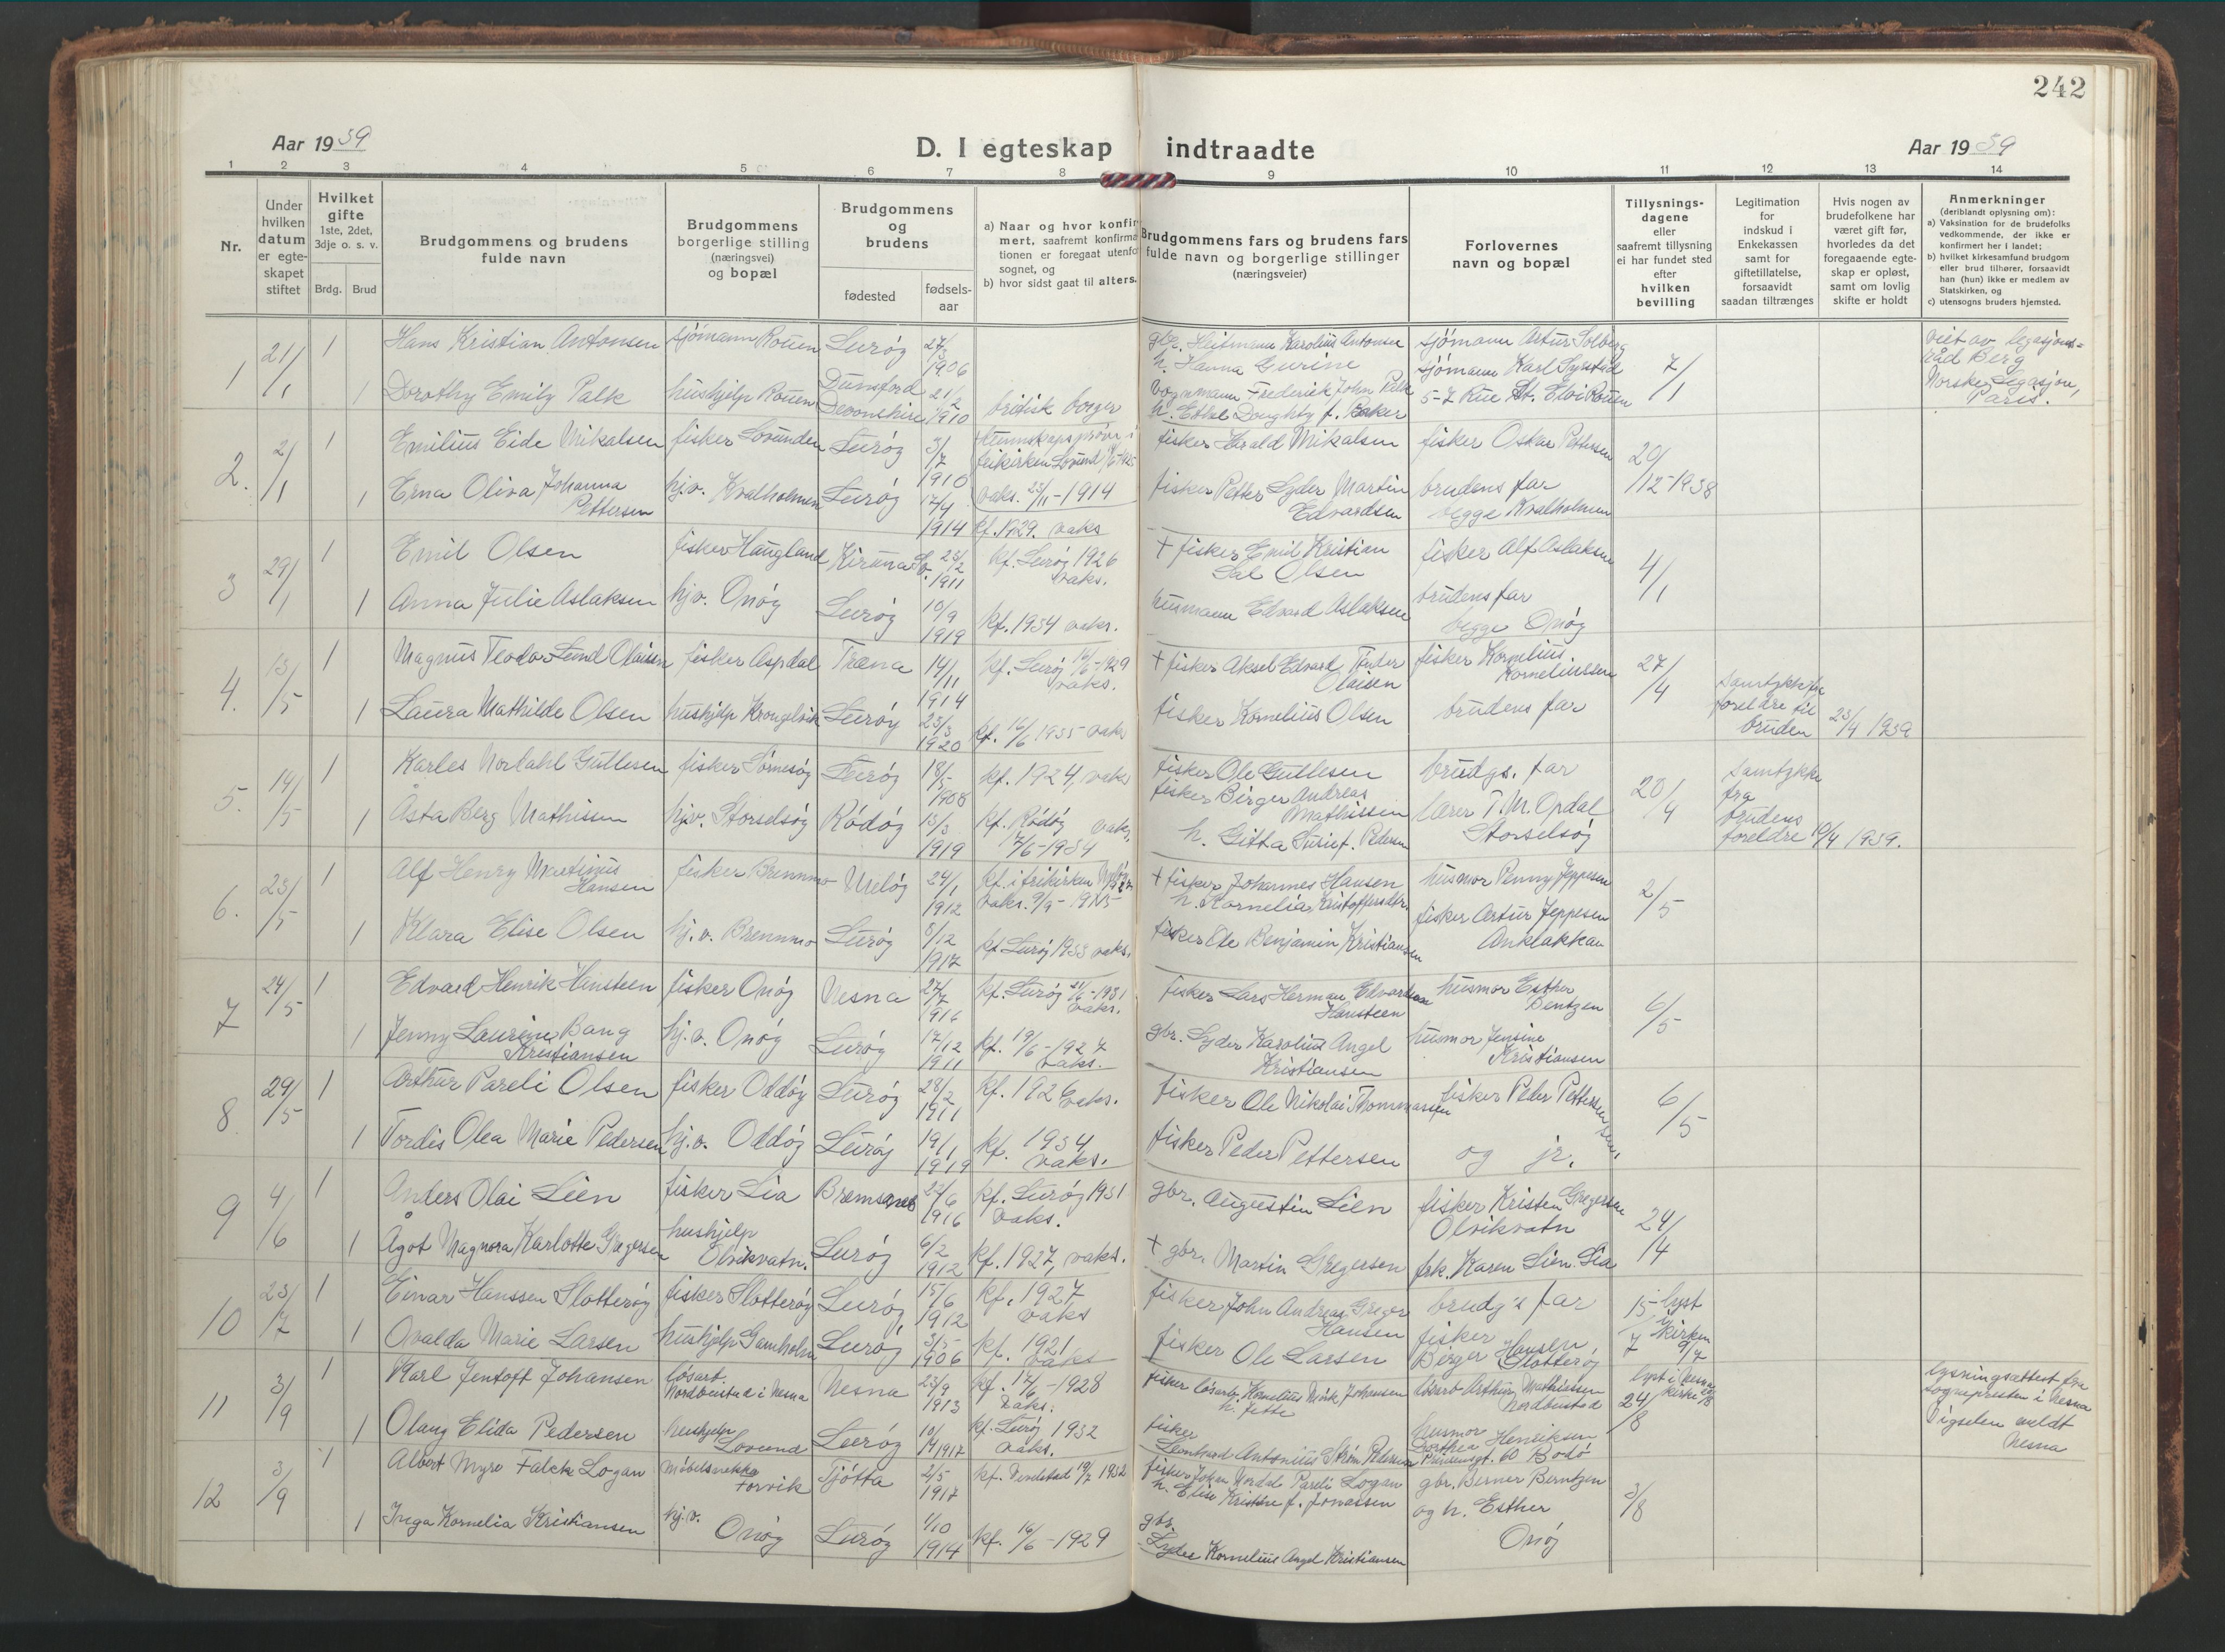 242
Aar 1939
D. I egteskap indtraadte
Aar 1939
1 2 3 4 5 6 7 8 9 10 11 12 13 14
Nr.
Under hvilken datum er egteskapet stiftet
Hvilket gifte
1ste, 2det, 3dje o. s. v.
Brdg. Brud
Brudgommens og brudens fulde navn
Brudgommens borgerlige stilling (næringsvei) og bopæl
Brudgommens og brudens
fødested
fødselsaar
a) Naar og hvor konfirmert, saafremt konfirmationen er foregaat utenfor sognet, og
b) hvor sidst gaat til alters.
Brudgommens fars og brudens fars fulde navn og borgerlige stillinger (næringsveier)
Forlovernes navn og bopæl
Tillysningsdagene eller saafremt tillysning ei har fundet sted efter hvilken bevilling
Legitimation for indskud i Enkekassen samt for giftetillatelse, forsaavidt saadan tiltrænges
Hvis nogen av brudefolkene har været gift før, hvorledes da det foregaaende egteskap er opløst, samt om lovlig skifte er holdt
Anmerkninger
(deriblandt oplysning om):
a) Vaksination for brudefolks vedkommende, der ikke er konfirmert her i landet;
b) hvilket kirkesamfund brudgom eller brud tilhører, forsaavidt han (hun) ikke er medlem av Statskirken, og
c) utensogns bruders hjemsted.
1 21/1 1 Hans Kristian Antonsen sjømann Rouen Lurøy 27/3 1906
gbr. Heitmann Karolius Antonsen
h. Hanna Gurine
sjømann Artur Solberg
sjømann Karl Syrstad
7/1
viet av legasjonsråd Berg
Norske Legasjon, Paris.
1 Dorothy Emily Palk hushjelp Rouen Dunsford Devonshire 21/2 1910 britisk borger
vognmann Frederik John Palk
h. Ethel Doughty f. Baker
5-7 Rue St. Eloi Rouen
2. 2/1 1 Emilius Eide Mikalsen fisker Lovunden Lurøy 3/7 1910
kunnskapsprøve i frikirken Lovund
vaks. 23/11-1914
fisker Harald Mikalsen
fisker Oskar Pettersen
20/12-1938
1 Erna Oliva Johanna Pettersen hj.v. Kvalholmen Lurøy 17/4 1914 kf. 1929. vaks
fisker Petter Lyder Martin Edvardsen
brudens far
begge Kvalholmen
3 29/1 1 Emil Olsen fisker Haugland Kiruna Sv. 23/2 1911 kf. Lurøy 1926 vaks.
+ fisker Emil Kristian Sal Olsen
fisker Alf Aslaksen
4/1
1 Anna Julie Aslaksen hj.v. Onøy Lurøy 10/9 1919 kf. 1934 vaks.
husmann Edvard Aslaksen
brudens far
begge Onøy
4. 13/5 1 Magnus Teodor Lund Olaisen fisker Aspdal Træna 14/11 1914 kf. Lurøy 16/6-1929 vaks.
+ fisker Aksel Edvard Tønder Olaisen
fisker Kornelius Korneliussen
27/4
1 Laura Mathilde Olsen hushjelp Krongelvik Lurøy 23/3 1920 kf. 16/6 1935 vaks
fisker Kornelius Olsen
brudens far
Samtykke fra foreldre til bruden 23/4 1939
5. 14/5 1 Karles Nordahl Gullesen fisker Sørnesøy Lurøy 18/5 1908 kf. 1924, vaks
fisker Ole Gullesen
brudgs. far
20/4
1 Åsta Berg Mathisen hj.v. Storselsøy Rødøy 13/3 1919 kf. Rødøy 17/6-1934 vaks.
fisker Birger Andreas Mathissen
h. Gitta Susie f. Pedersen
lærer T. M. Opdal
Storselsøy
Samtykke fra brudens foreldre 19/4 1939.
6. 23/5 1 Alf Henry Martinus Hansen fisker Brennmo Meløy 24/1 1912
kf. i frikirken
vaks. 9/9-1915
+ fisker Johannes Hansen
h. Kornelia Kristoffersdtr.
husmor Penny Jeppesen
2/5
1 Klara Elise Olsen hj.v. Brennmo Lurøy 8/12 1917 kf. Lurøy 1933 vaks.
fisker Ole Benjamin Kristiansen
fisker Artur Jeppesen
Anklakkan
7 24/5 1 Edvard Henrik Hansteen fisker Onøy Nesna 27/7 1916 kf. Lurøy 21/6-1931 vaks.
fisker Lars Herman Edvardsen Hansteen
husmor Esther Bentzen
6/5
1 Jenny Laurine Bang Kristiansen hj.v. Onøy Lurøy 17/12 1911 kf. 19/6-1927 vaks.
gbr. Lyder Karolius Angel Kristiansen
husmor Jensine Kristiansen
8. 29/5 1 Arthur Pareli Olsen fisker Oddøy Lurøy 28/2 1911 kf. 1926 vaks.
fisker Ole Nikolai Thommassen
fisker Peder Pettersen sen.
6/5
1 Tordis Olea Marie Pedersen hj.v. Oddøy Lurøy 19/1 1919 kf. 1934 vaks.
fisker Peder Pettersen
og jr.
9 4/6 1 Anders Olai Lien fisker Lia Bremsnes 23/6 1916 kf. Lurøy 1931 vaks.
gbr. Augustin Lien
fisker Kristen Gregersen
Olvikvatn
24/4
1 Ågot Magnora Karlotte Gregersen hushjelp Olvikvatn. Lurøy 6/2 1912 kf. 1927, vaks.
+ gbr. Martin Gregersen
frk. Karen Lien. Lia
10 23/7 1 Einar Hanssen Slotterøy fisker Slotterøy Lurøy 15/6 1912 kf. 1927 vaks
fisker John Andreas Greger Hansen
brudg's far
15/7 lyst i kirken 9/7
1 Ovalda Marie Larsen hushjelp Gamholm Lurøy 3/5 1906 kf. 1921 vaks
fisker Ole Larsen
fisker Birger Hansen Slotterøy
11 3/9 1 Karl Jentoft Johansen løsarb. Nordbustad i Nesna Nesna 23/9 1913 kf. 17/6-1928 vaks.
fisker løsarb. Kornelius Mørk Johansen
h. Jette
løsarb Arthur Mathiassen
Nordbustad
24/8
lyst i Nesna kirke
lysningsattest fra sognepresten i Nesna
Vigselen meldt Nesna
1 Olaug Elida Pedersen hushjelp Lovund Lurøy 10/4 1917 kf. Lurøy 1932 vaks.
fisker Leonhard Antonius Strøm Pedersen
husmor Dorthea Henriksen
60 Bodø
12 3/9 1 Albert Myre Falch Logan møbelsnekker Forvik Tjøtta 2/5 1917 kf. Vevelstad 19/7 1932
fisker Johan Nordal Pareli Logan
h. Elise Kristine f. Jonassen
gbr. Berner Berntzen
3/8
1 Inga Kornelia Kristiansen hj.v. Onøy Lurøy 1/10 1914 kf. 16/6-1929
gbr. Lyder Kornelius Angel Kristiansen
og h. Esther
Onøy